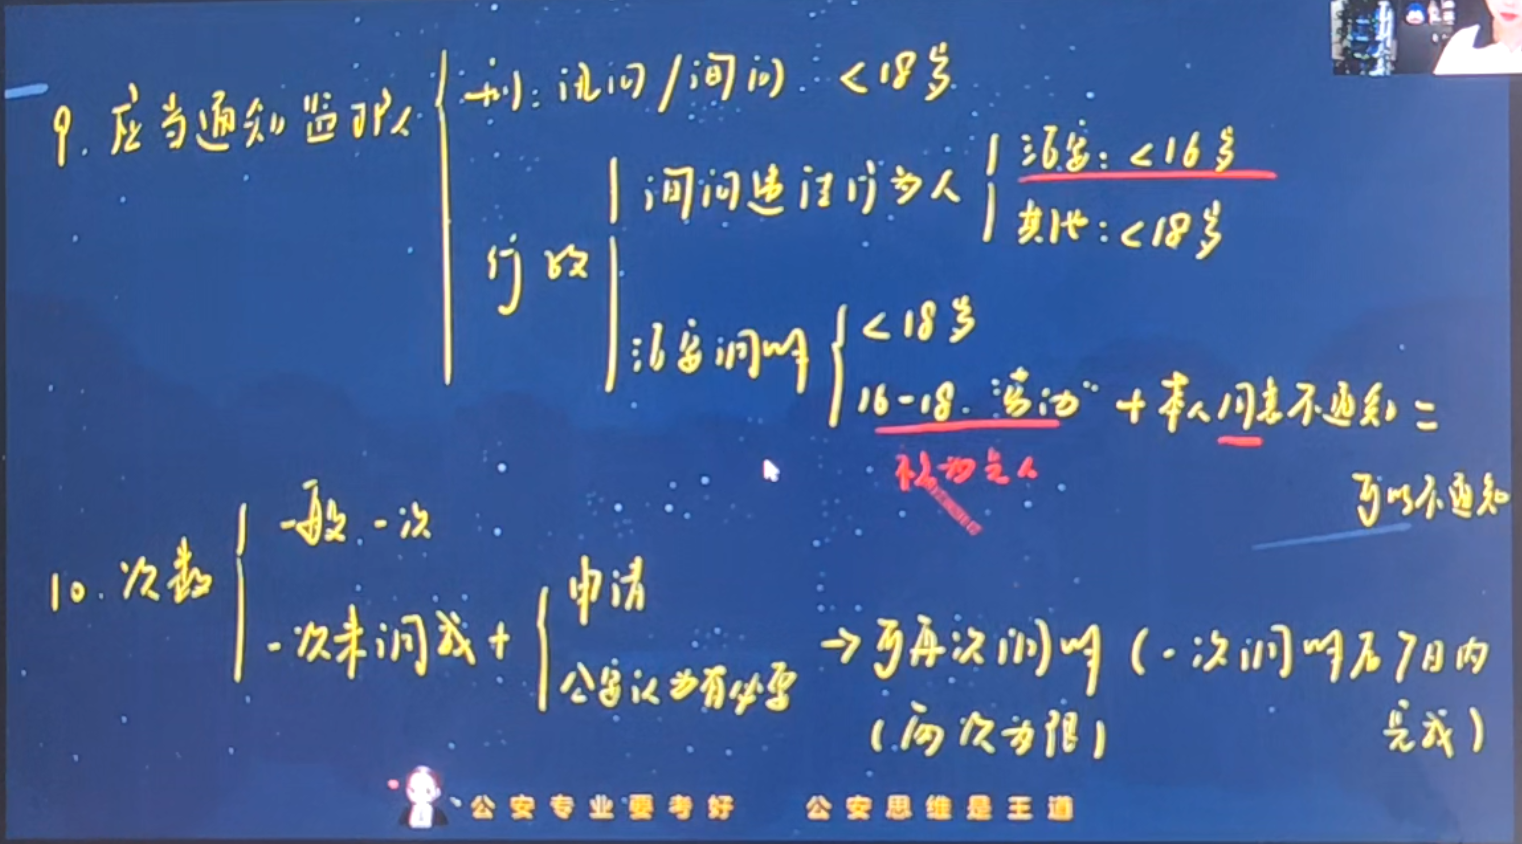 9. 应当通知监护人
刑: 讯问/询问. <18岁
行政
询问违法行为人
治安: <16岁
其他: <18岁
治安调解
<18岁
16-18. "劳动" + 本人同意不通知 =
可以不通知
10. 次数
一般一次
一次未调成 +
申请
公安认为有必要
→ 可再次调解 (一次调解后7日内
(两次为限)
完成)
公安专业要考好 公安思维是王道